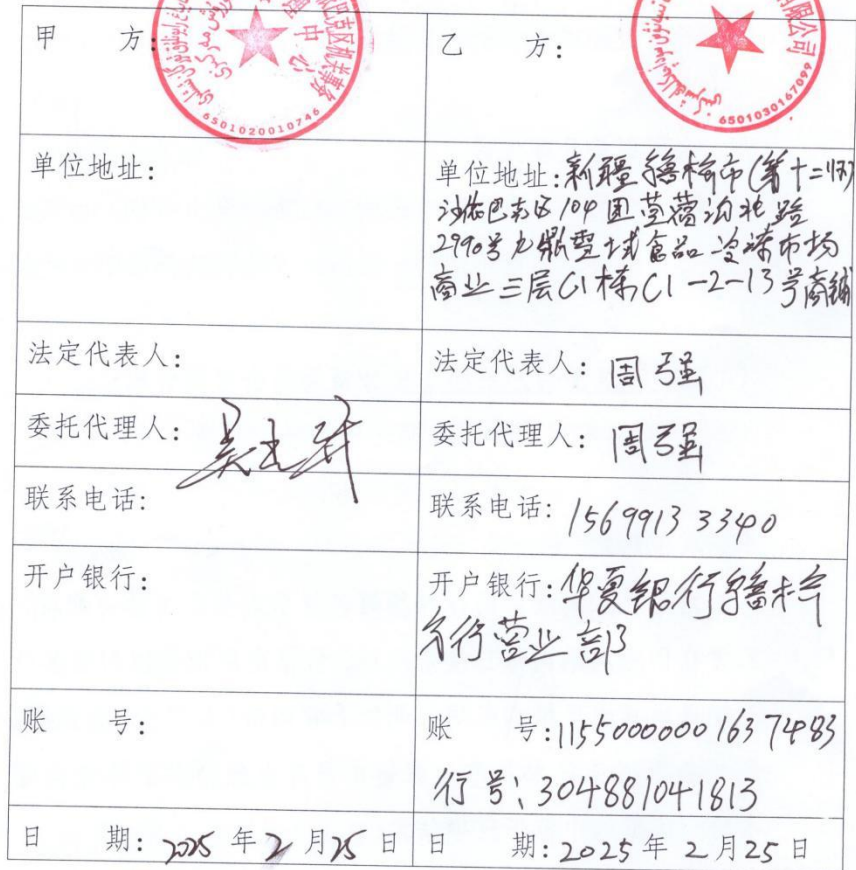 甲 方:
6501020010746
乙 方:
有限公司
6501030167099
单位地址:
单位地址:新疆乌鲁木齐市(第十二师)
沙依巴克区104团苜蓿沟北路
2990号九鼎西域食品冷冻市场
商业三层C1栋C1-2-13号商铺
法定代表人:
法定代表人:周强
委托代理人:
委托代理人:周强
联系电话:
联系电话:15699133340
开户银行:
开户银行:华夏银行乌鲁木齐
分行营业部
账 号:
账 号:11550000001637483
行号:304881041813
日 期:2025年2月25日
日 期:2025年2月25日